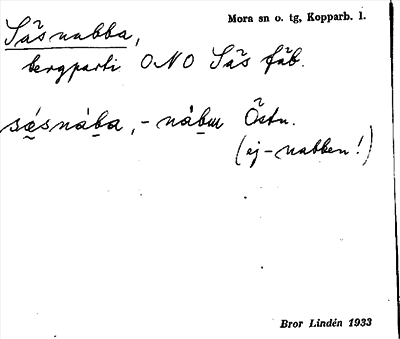 Såsnabba, Mora sn o. tg, Kopparb. l.
bergparti ONO Sås fäb.
sásnába, - nábm Östn.
(ej -nabben!)
Bror Lindén 1933